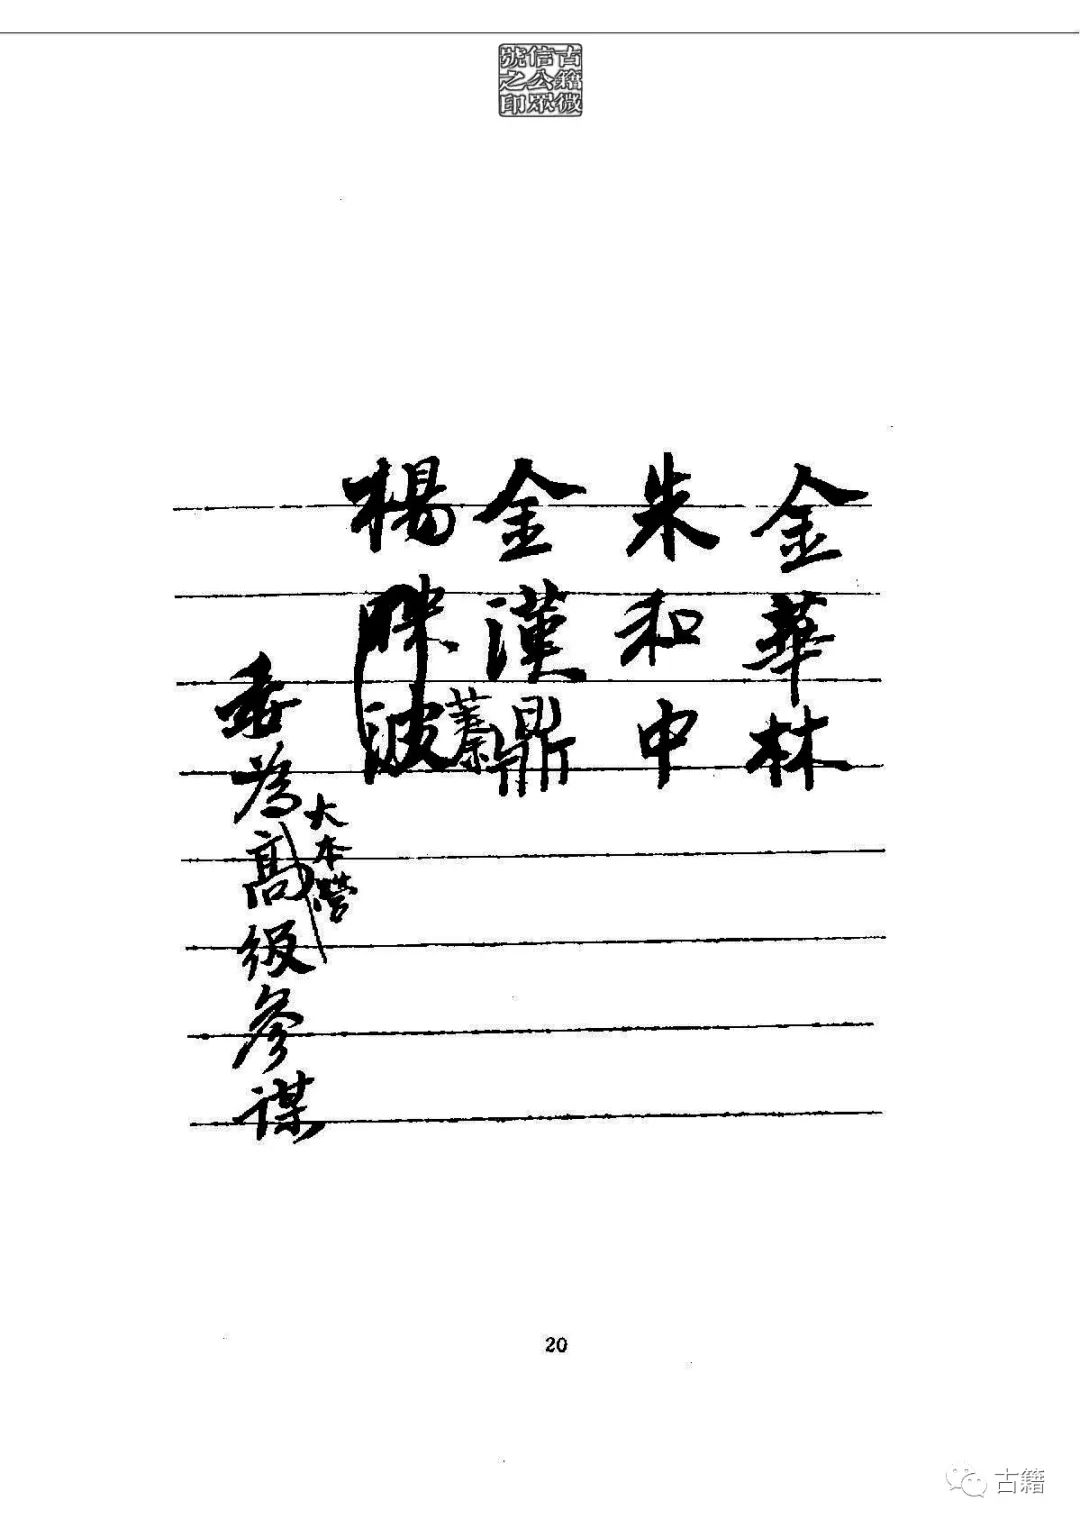 古籍微
信公眾
號之印
金華林
朱和中
金漢鼎
蓁
楊映波
大本營
委為高級參謀
20
古籍